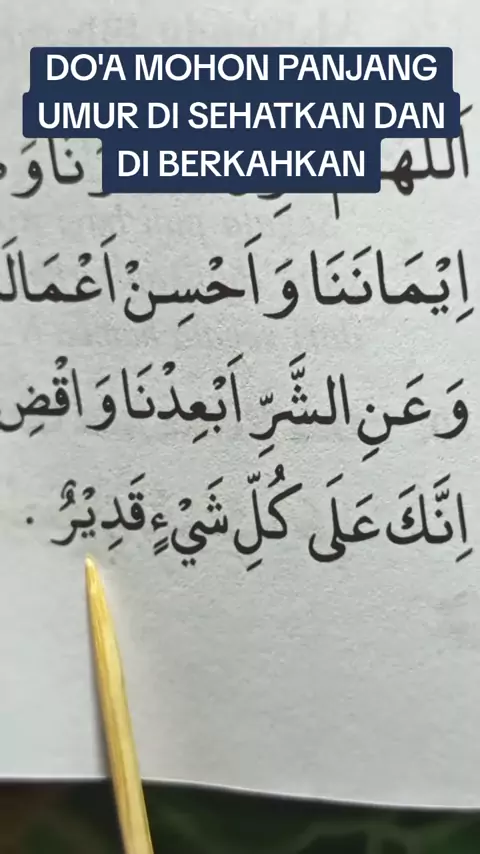 DO'A MOHON PANJANG
UMUR DI SEHATKAN DAN
DI BERKAHKAN
اِيْمَانَنَا وَاَحْسِنْ
وَعَنِ الشَّرِّ اَبْعِدْنَا وَاقْضِ
اِنَّكَ عَلَى كُلِّ شَيْءٍ قَدِيْرٌ .